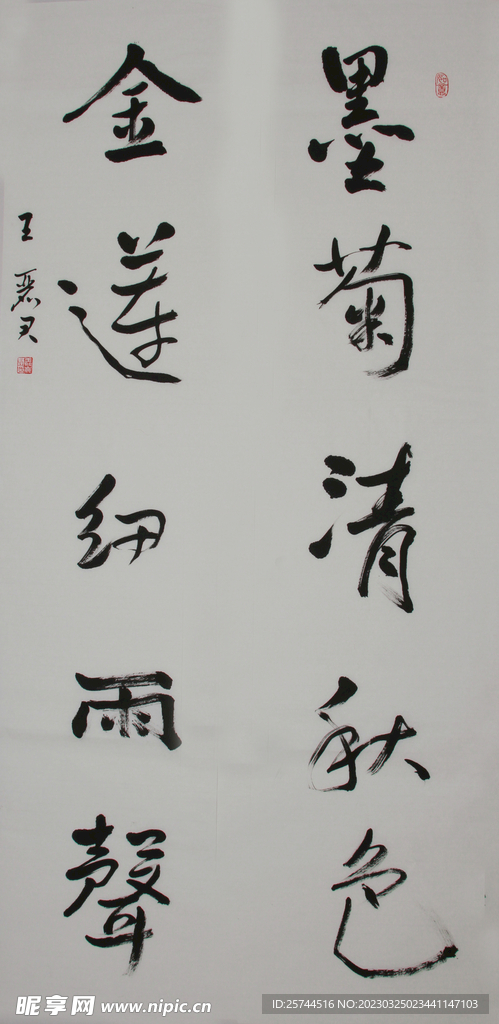 墨菊清秋色
金蓮細雨聲
王
昵享网 www.nipic.cn
ID:25744516 NO:20230325023441147103